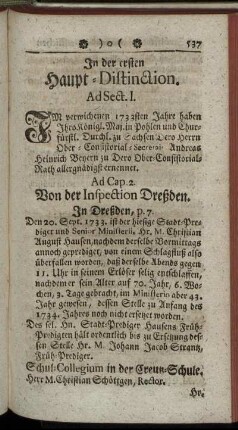 )o( 537
In der ersten
Haupt-Distinction.
Ad Sect. I.
IM verwichenen 1732sten Jahre haben
Ihro Königl. Maj. in Pohlen und Chur-
fürstl. Durchl. zu Sachsen Dero Herrn
Ober-Consistorial-Secretair Andreas
Heinrich Beyern zu Dero Ober-Consistorial-
Rath allergnädigst ernennet.
Ad Cap. 2.
Von der Inspection Dreßden.
In Dreßden, p. 7.
Den 20. Sept. 1733. ist der hiesige Stadt-Pre-
diger und Senior Ministerii, Hr. M. Christian
August Hausen, nachdem derselbe Vormittags
annoch geprediget, von einem Schlagfluß also
überfallen worden, daß derselbe Abends gegen
11. Uhr in seinem Erlöser selig entschlaffen,
nachdem er sein Alter auf 70. Jahr, 6. Wo-
chen, 3. Tage gebracht, im Ministerio aber 43.
Jahr gewesen, dessen Stelle zu Anfang des
1734. Jahres noch nicht ersetzet worden.
Des sel. Hn. Stadt-Prediger Hausens Früh-
Predigten hält ordentlich bis zu Ersetzung des-
sen Stelle Hr. M. Johann Jacob Strantz,
Früh-Prediger.
Schul-Collegium in der Creutz-Schule.
Herr M. Christian Schöttgen, Rector.
Hr.